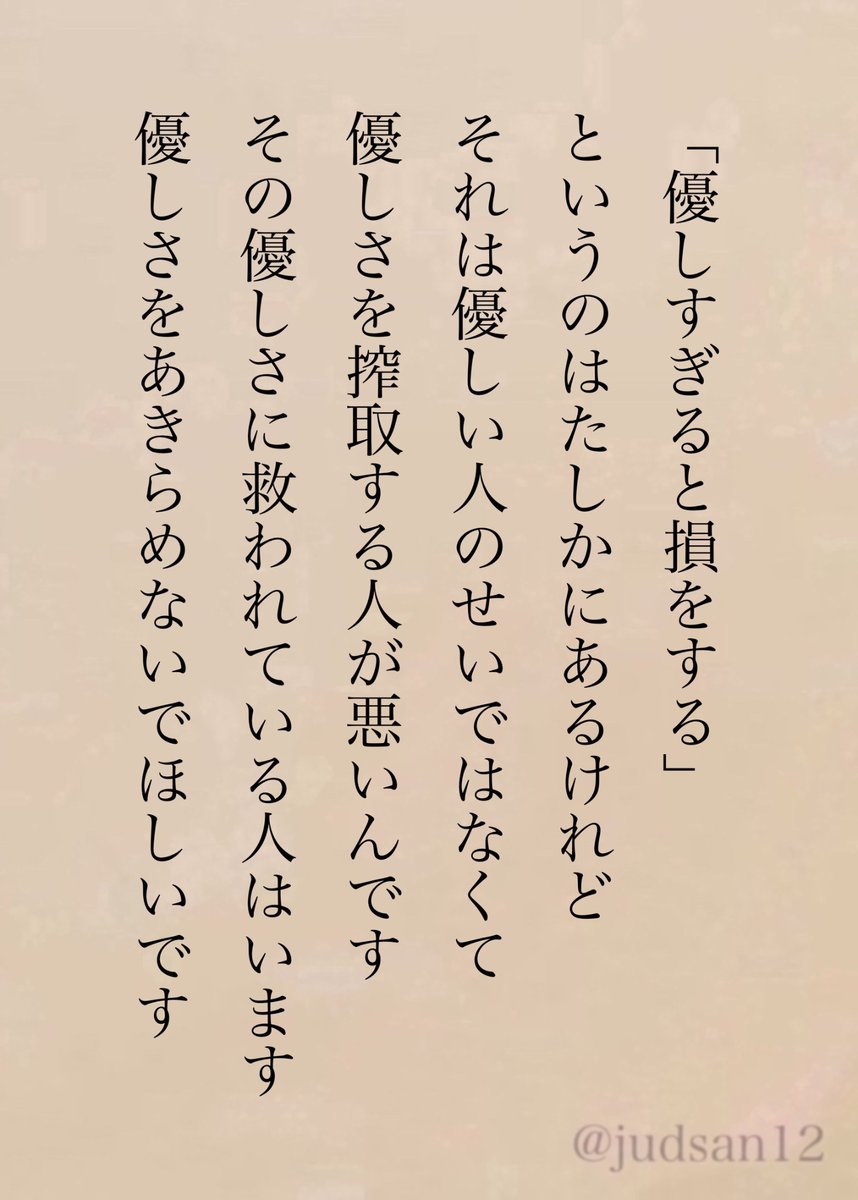 「優しすぎると損をする」
というのはたしかにあるけれど
それは優しい人のせいではなくて
優しさを搾取する人が悪いんです
その優しさに救われている人はいます
優しさをあきらめないでほしいです
@judsan12